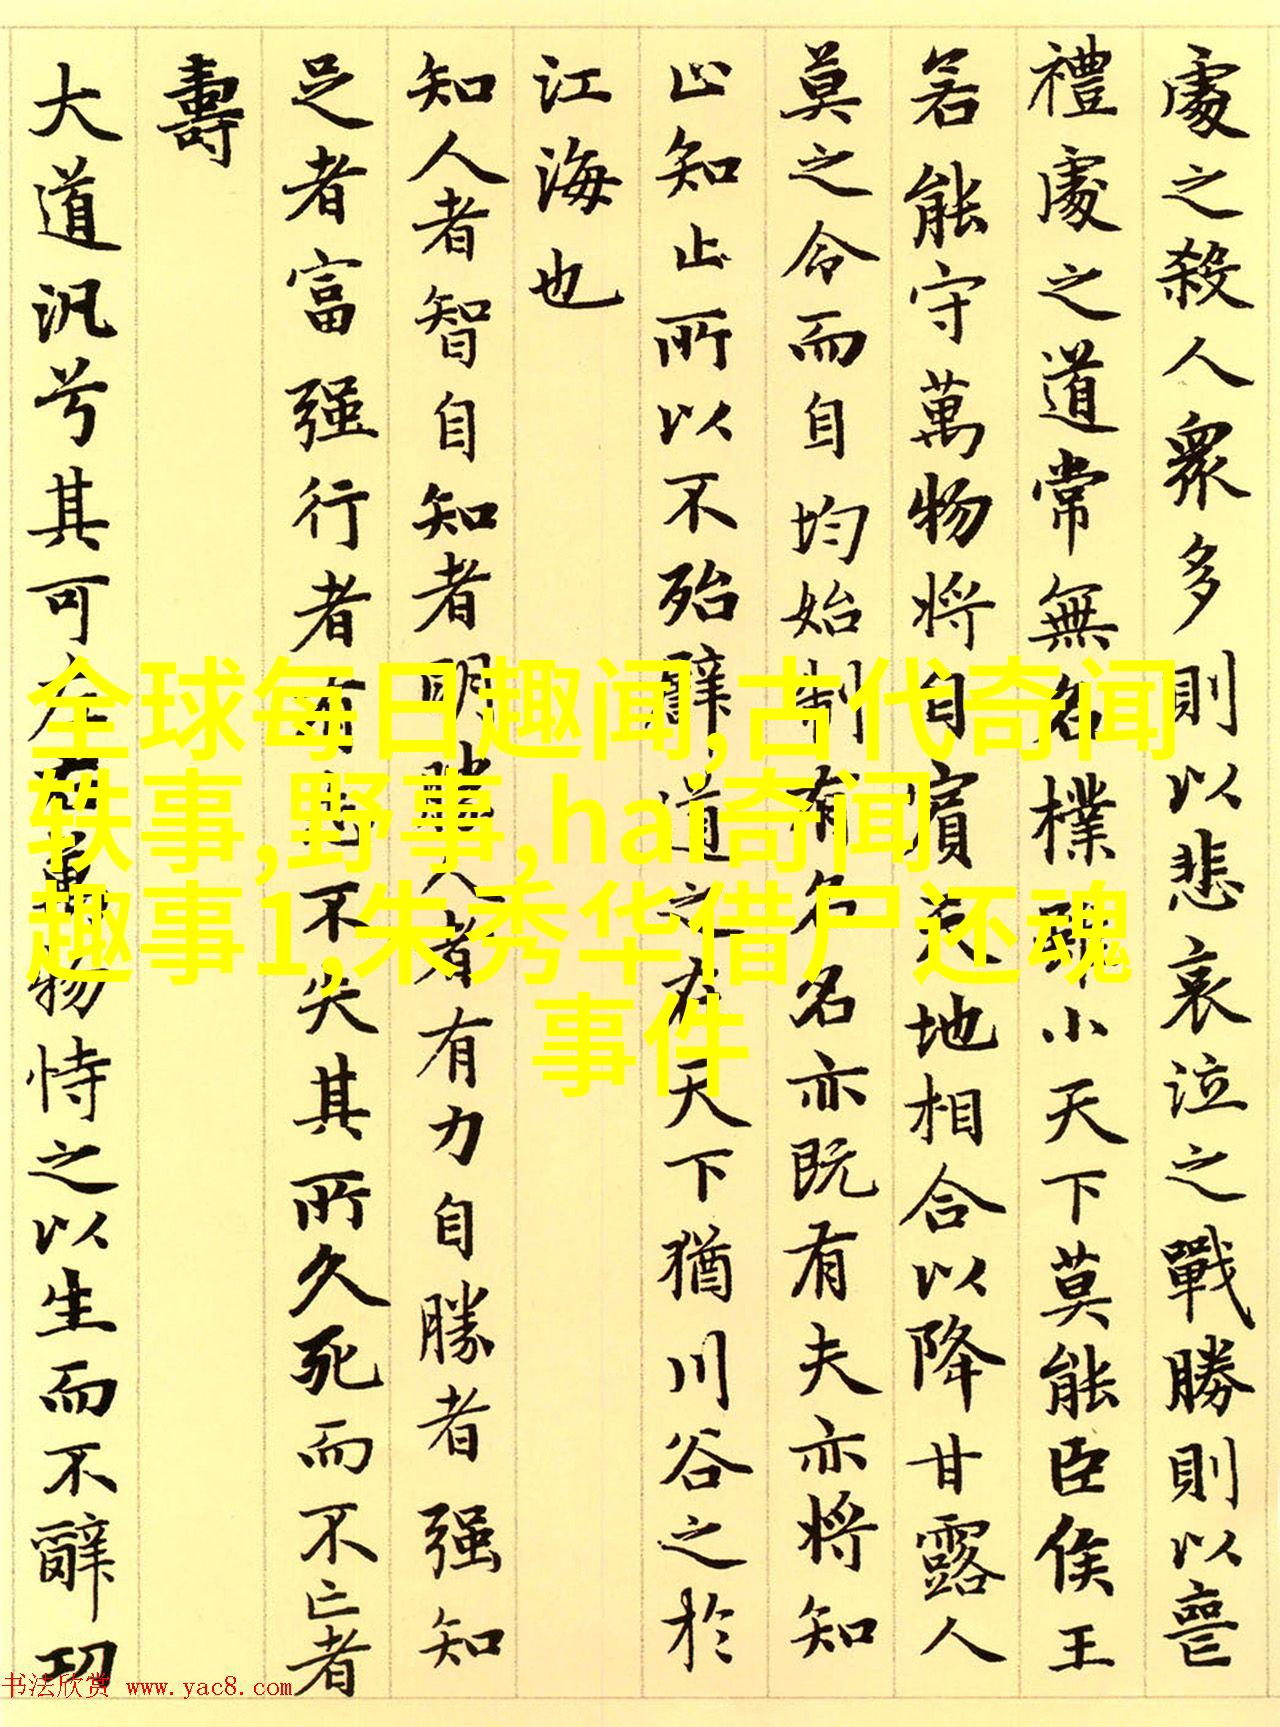 處之殺人衆多則以悲哀泣之戰勝則以喪
禮處之道常無名樸雖小天下莫能臣侯王
若能守萬物將自賓天地相合以降甘露人
莫之令而自均始制有名名亦既有夫亦將知
止知止所以不殆譬道之在天下猶川谷之於
江海也
知人者智自知者明勝人者有力自勝者强知
足者富强行者有志不失其所久死而不亡者
壽
大道汎兮其可左右萬物恃之以生而不辭功
全球每日趣闻,古代奇闻
轶事,野事,hai奇闻
趣事1,朱秀华借尸还魂
事件
书法欣赏 www.yac8.com